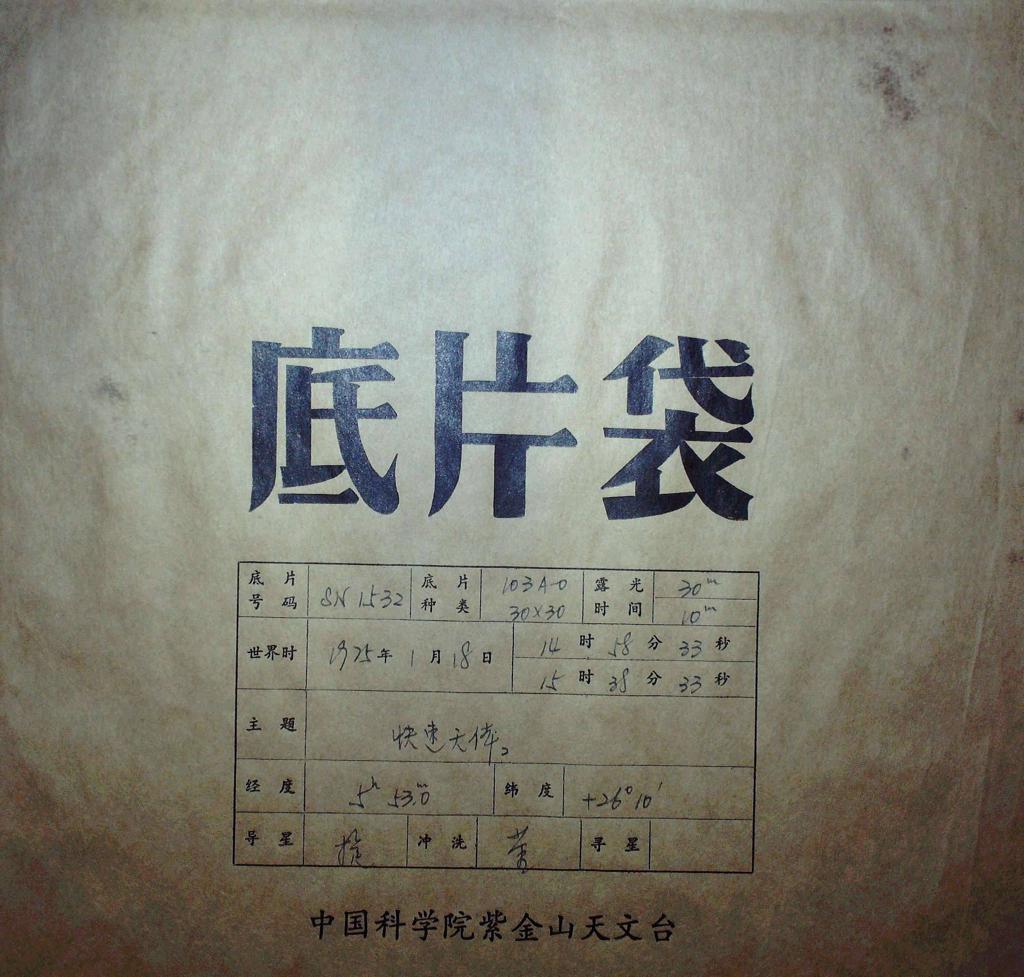 底片袋
底片号码 SN 1532 底片种类 103A-O 30×30 露光时间 30ᵐ 10ᵐ
世界时 1975年 1月 18日 14时 58分 33秒
15时 38分 33秒
主题 快速天体₂
经度 5ʰ 53ᵐ.0 纬度 +26° 10′
导星 冲洗 寻星
中国科学院紫金山天文台